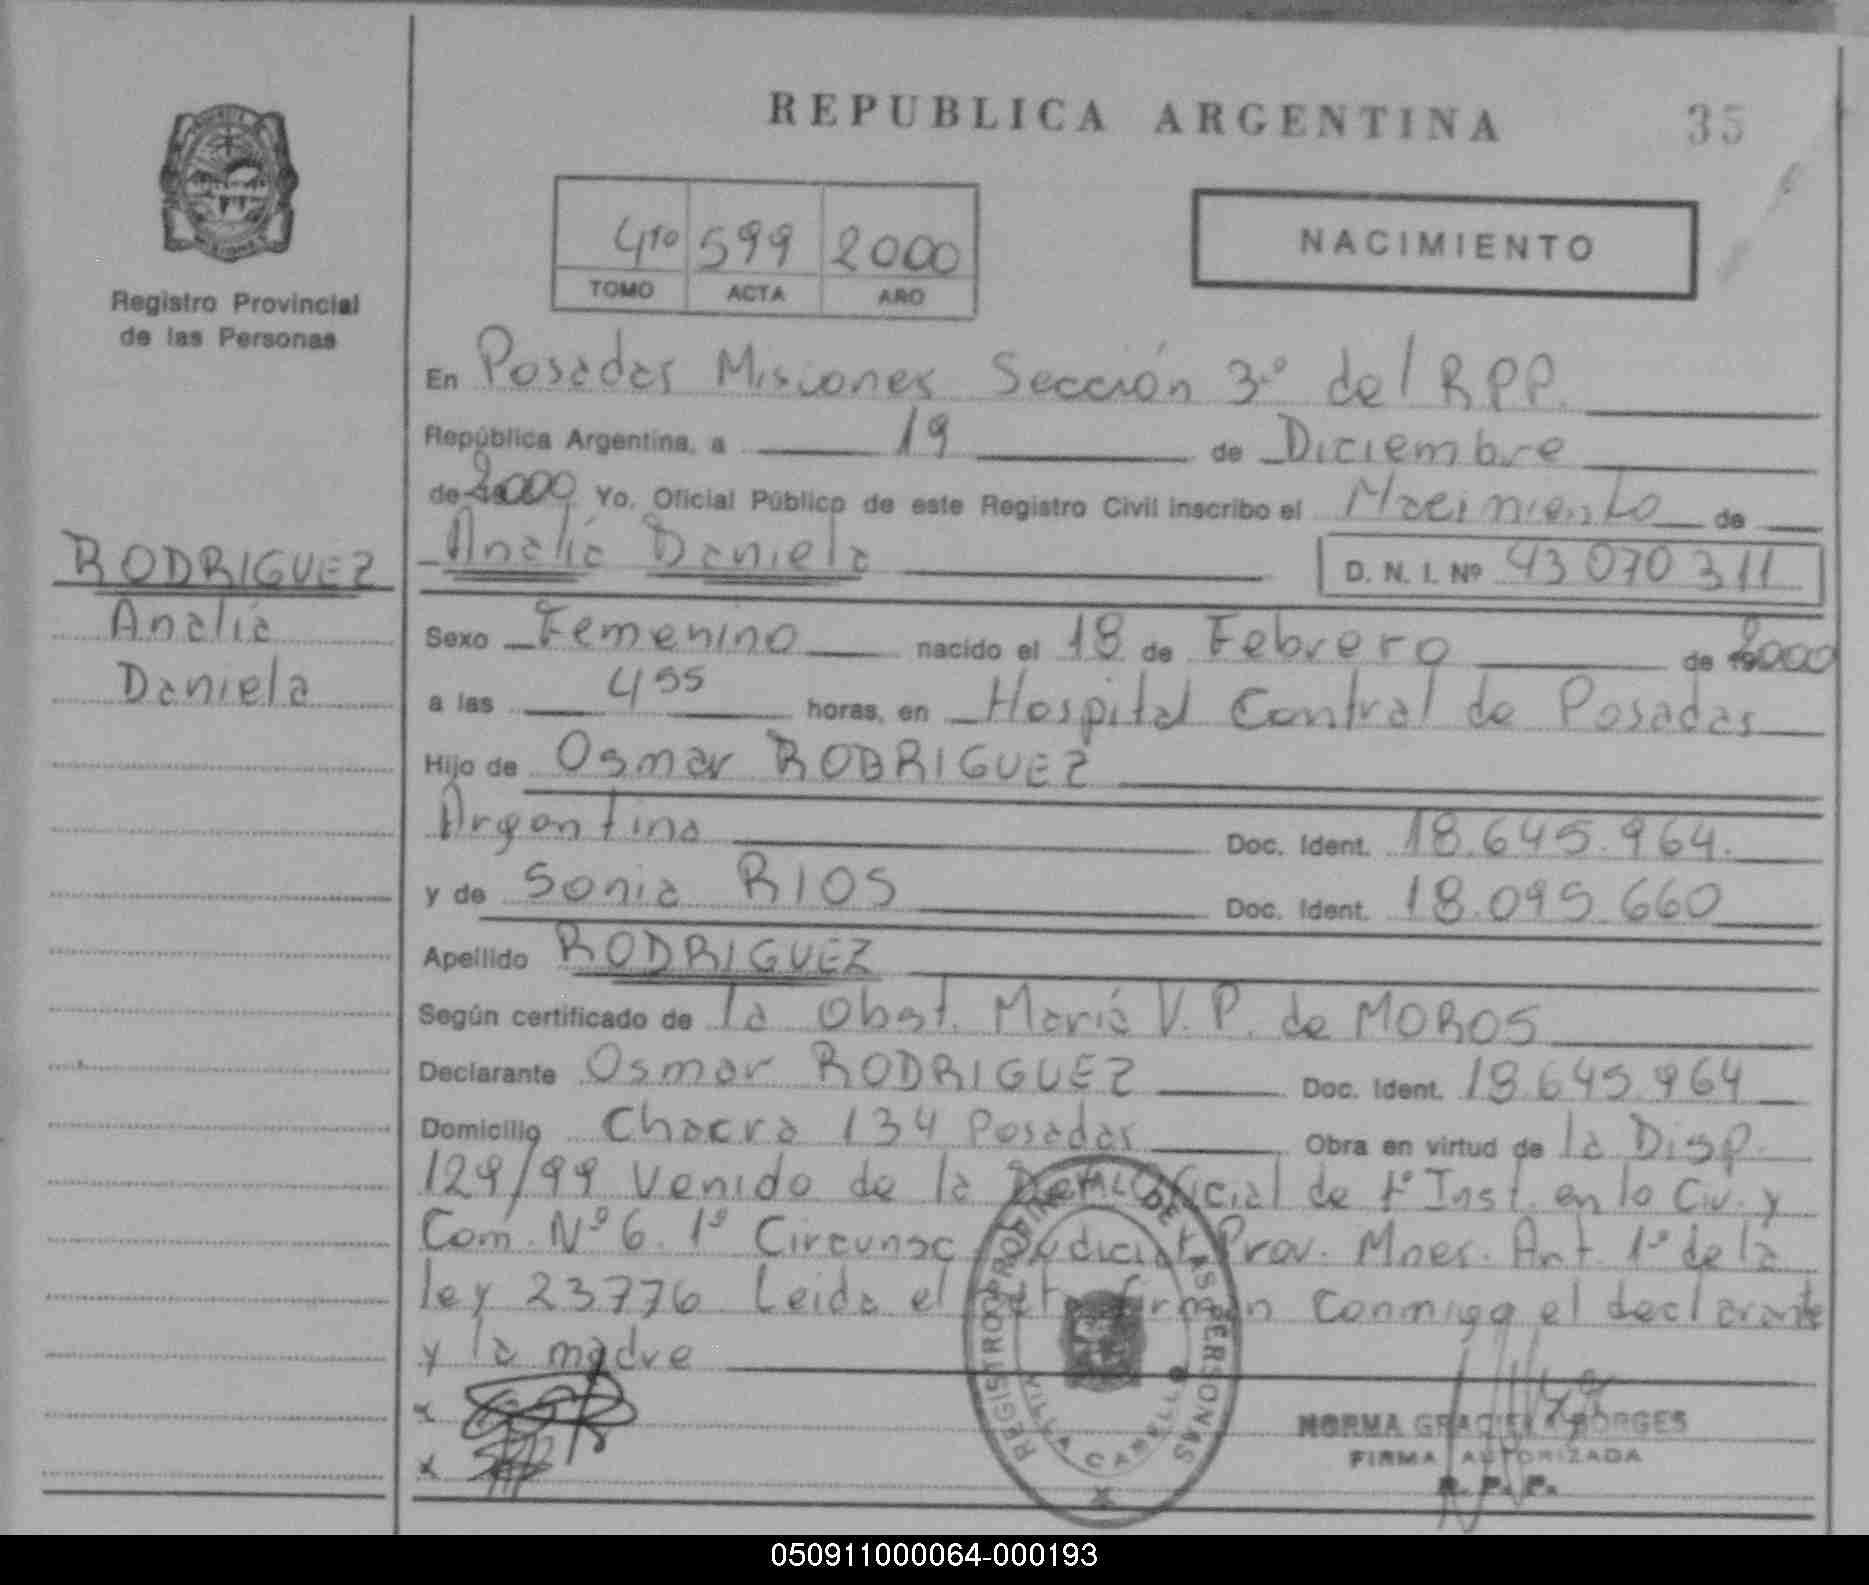 REPUBLICA ARGENTINA
35
Registro Provincial
de las Personas
4to 599 2000
TOMO ACTA AÑO
NACIMIENTO
En Posadas Misiones Sección 3º del RPP.
República Argentina, a 19 de Diciembre
de 2000 Yo, Oficial Público de este Registro Civil inscribo el Nacimiento de
Analia Daniela D. N. I. Nº 43 070 311
RODRIGUEZ
Analia
Daniela
Sexo Femenino nacido el 18 de Febrero de 2000
a las 4 55 horas, en Hospital Central de Posadas
Hijo de Osmar RODRIGUEZ
Argentino Doc. Ident. 18.645.964.
y de Sonia RIOS Doc. Ident. 18.095.660
Apellido RODRIGUEZ
Según certificado de la Obst. María V. P. de MOROS
Declarante Osmar RODRIGUEZ Doc. Ident. 18.645.964
Domicilio Chacra 134 Posadas Obra en virtud de la Disp.
129/99 Venido de la Oficial de 1º Inst. en lo Civ. y
Com. Nº 6. 1º Circunsc Judicial Prov. Mnes. Art. 1º de la
ley 23776 Leida el firman conmigo el declarante
y la madre
x
x
REGISTRO PROVINCIAL DE LAS PERSONAS
VILLA CABELLO
NORMA GRACIELA BORGES
FIRMA AUTORIZADA
R. P. P.
050911000064-000193